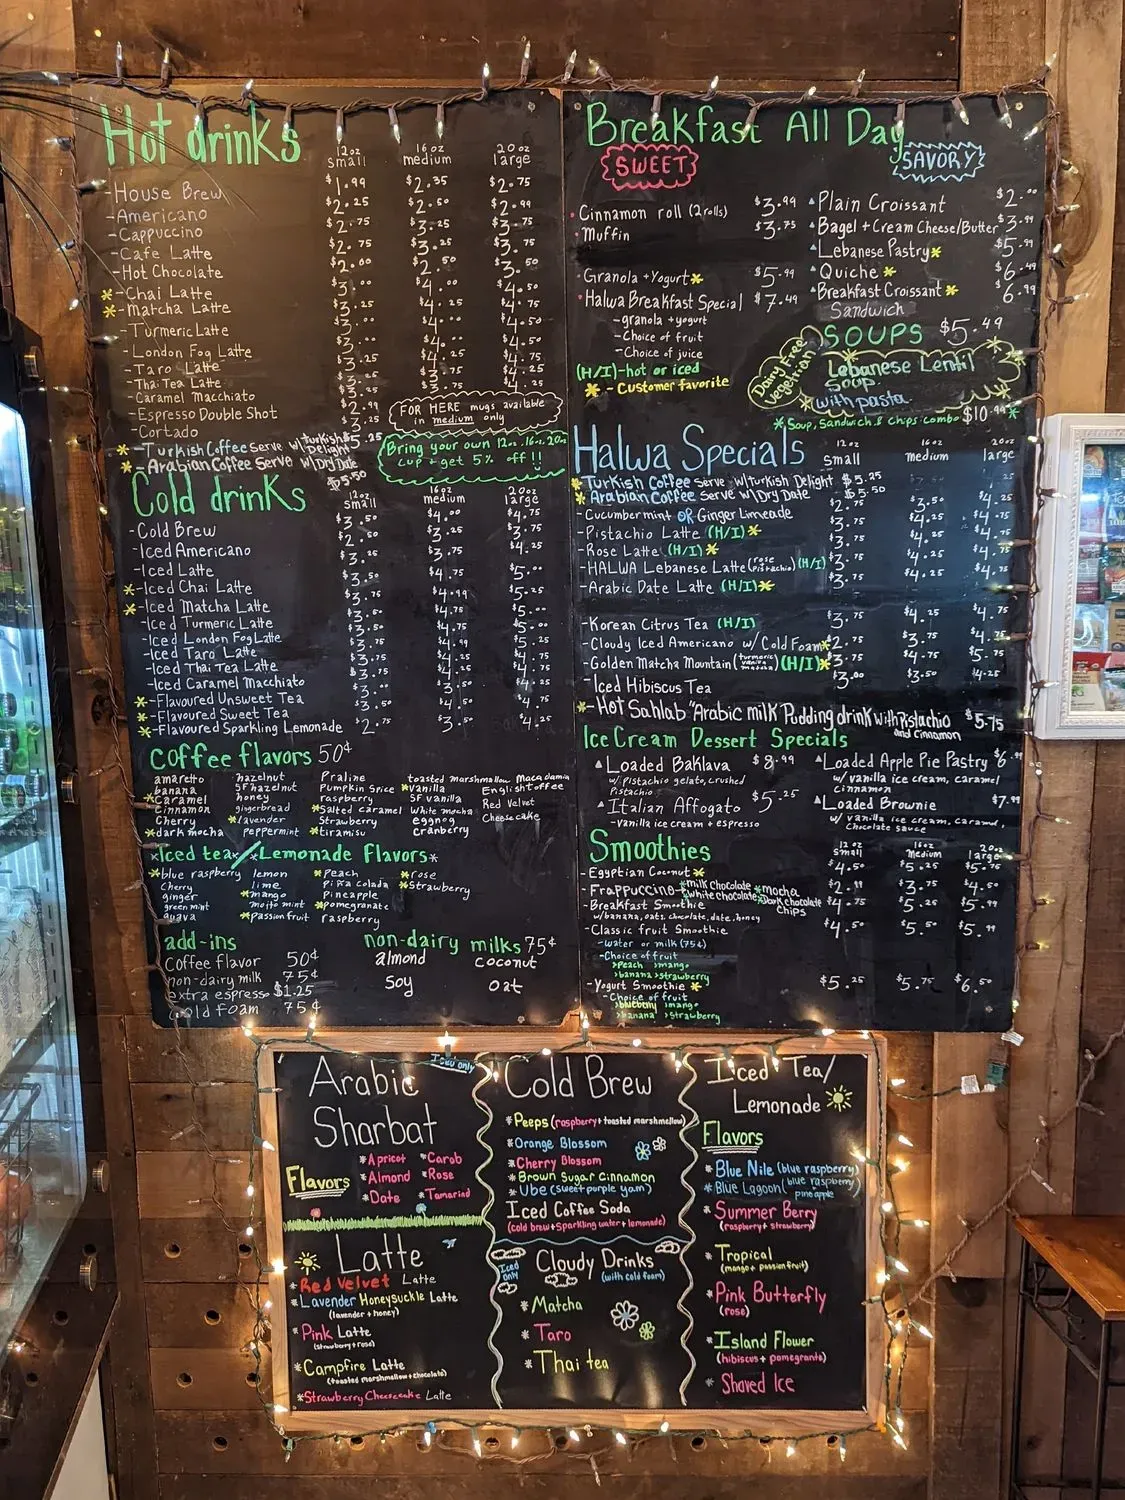 Hot drinks
12oz small 16oz medium 20oz large
-House Brew $1.99 $2.35 $2.75
-Americano $2.25 $2.50 $2.99
-Cappuccino $2.75 $3.25 $3.75
-Cafe Latte $2.75 $3.25 $3.75
-Hot Chocolate $2.00 $2.50 $3.50
*-Chai Latte $3.00 $4.00 $4.50
*-Matcha Latte $3.25 $4.25 $4.75
-Turmeric Latte $3.00 $4.00 $4.50
-London Fog Latte
-Taro Latte
-Thai Tea Latte
-Caramel Macchiato
-Espresso Double Shot $2.99
-Cortado $3.25
*-Turkish Coffee Serve w/Turkish Delight $5.25
*-Arabian Coffee Serve w/Dry Date $5.50
FOR HERE mugs available
in medium only
Bring your own 12oz, 16oz, 20oz
cup + get 5% off!!
Cold drinks
12oz small 16oz medium 20oz large
-Cold Brew $3.50 $4.00 $4.75
-Iced Americano $2.50 $3.25 $3.75
-Iced Latte $3.25 $3.75 $4.25
*-Iced Chai Latte $3.50 $4.75 $5.00
*-Iced Matcha Latte $3.75 $4.99 $5.25
-Iced Turmeric Latte $3.50 $4.75 $5.00
-Iced London Fog Latte
-Iced Taro Latte
-Iced Thai Tea Latte
-Iced Caramel Macchiato
*-Flavoured Unsweet Tea
*-Flavoured Sweet Tea
*-Flavoured Sparkling Lemonade $2.75 $3.50 $4.25
Coffee flavors 50¢
amaretto hazelnut Praline toasted marshmallow Macadamia
banana SF hazelnut Pumpkin Spice *vanilla English toffee
*Caramel honey raspberry SF vanilla Red Velvet
Cinnamon gingerbread *Salted caramel White mocha Cheesecake
Cherry *lavender Strawberry eggnog
*dark mocha peppermint *tiramisu cranberry
*Iced tea*/*Lemonade Flavors*
*blue raspberry lemon *peach *rose
Cherry lime piña colada *Strawberry
ginger *mango Pineapple
green mint mojito mint *pomegranate
guava *passion fruit raspberry
add-ins
Coffee flavor 50¢
non-dairy milk 75¢
extra espresso $1.25
Cold foam 75¢
non-dairy milks 75¢
almond coconut
Soy oat
Breakfast All Day
SWEET
Cinnamon roll (2 rolls) $3.99
Muffin $3.75
Granola + Yogurt* $5.99
Halwa Breakfast Special $7.49
-granola + yogurt
-Choice of fruit
-Choice of juice
(H/I)-hot or iced
* - Customer favorite
SAVORY
Plain Croissant $2.00
Bagel + Cream Cheese/Butter $3.99
Lebanese Pastry* $5.99
Quiche* $6.49
Breakfast Croissant* $6.99
Sandwich
SOUPS $5.49
Dairy Free
Vegetarian
Lebanese Lentil
Soup
with pasta
*Soup, Sandwich, & Chips combo $10.99*
Halwa Specials
12oz small 16oz medium 20oz large
*Turkish Coffee Serve w/Turkish Delight $5.25
*Arabian Coffee Serve w/Dry Date $5.50
-Cucumbermint OR Ginger Limeade $2.75 $3.50 $4.25
-Pistachio Latte (H/I)* $3.75 $4.25 $4.75
-Rose Latte (H/I)* $3.75 $4.25 $4.75
-HALWA Lebanese Latte (rose pistachio) (H/I) $3.75 $4.25 $4.75
-Arabic Date Latte (H/I)* $3.75 $4.25 $4.75
-Korean Citrus Tea (H/I) $3.75 $4.25 $4.75
-Cloudy Iced Americano w/ Cold Foam* $2.75 $3.75 $4.75
-Golden Matcha Mountain (turmeric vanilla matcha) (H/I)* $3.75 $4.75 $5.75
-Iced Hibiscus Tea $3.00 $3.50 $4.25
*-Hot Sahlab "Arabic milk Pudding drink with Pistachio
and Cinnamon $5.75
Ice Cream Dessert Specials
Loaded Baklava $8.99
w/ Pistachio gelato, crushed
Pistachio
Italian Affogato $5.25
-Vanilla ice cream + espresso
Loaded Apple Pie Pastry $6.99
w/ vanilla ice cream, caramel
Cinnamon
Loaded Brownie $7.99
w/ vanilla ice cream, caramel,
Chocolate sauce
Smoothies
12oz small 16oz Medium 20oz large
-Egyptian Coconut* $4.50 $5.25 $5.75
-Frappuccino *milk chocolate *mocha $2.99 $3.75 $4.50
*white chocolate *Dark chocolate chips
-Breakfast Smoothie $4.75 $5.25 $5.99
w/banana, oats, chocolate, date, honey
-Classic fruit Smoothie $4.50 $5.50 $5.99
-water or milk (75¢)
-Choice of fruit
>Peach >mango
>banana >strawberry
-Yogurt Smoothie* $5.25 $5.75 $6.50
-Choice of fruit
>blueberry >mango
>banana >strawberry
Arabic
Sharbat
Iced only
Flavors
*Apricot *Carob
*Almond *Rose
*Date *Tamarind
Latte
*Red Velvet Latte
*Lavender Honeysuckle Latte
(lavender + honey)
*Pink Latte
(strawberry + rose)
*Campfire Latte
(toasted marshmallow + chocolate)
*Strawberry Cheesecake Latte
Cold Brew
*Peeps (raspberry + toasted marshmallow)
*Orange Blossom
*Cherry Blossom
*Brown Sugar Cinnamon
*Ube (sweet purple yam)
Iced Coffee Soda
(cold brew + sparkling water + lemonade)
Iced only
Cloudy Drinks
(with cold foam)
*Matcha
*Taro
*Thai tea
Iced Tea/
Lemonade
Flavors
*Blue Nile (blue raspberry)
*Blue Lagoon (blue raspberry
pineapple
*Summer Berry
(raspberry + strawberry)
*Tropical
(mango + passion fruit)
*Pink Butterfly
(rose)
*Island Flower
(hibiscus + pomegranate)
*Shaved Ice